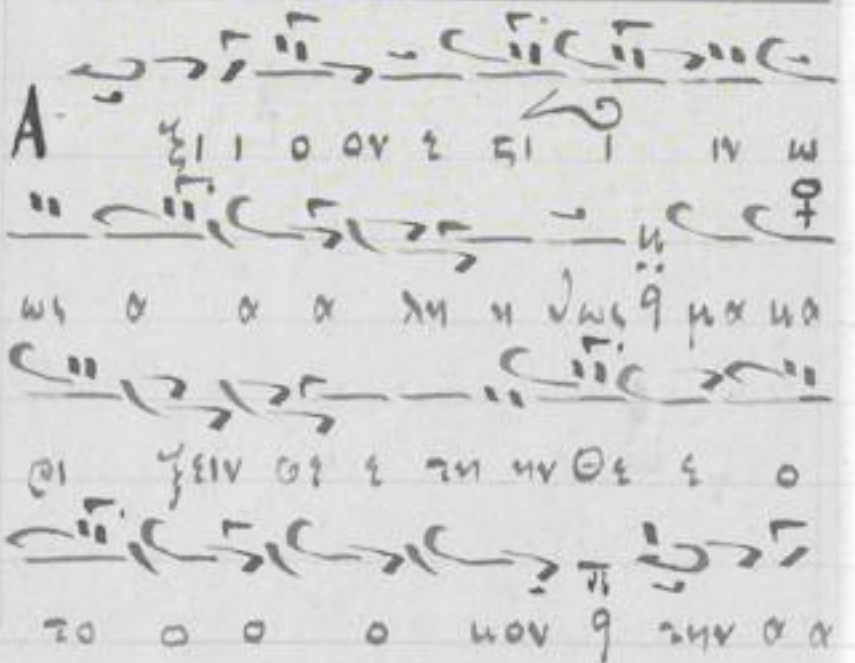 Α ξι ι ο ον ε ϛι ι ιν ω
ως α α α λη η θως μα κα
ρι ζειν σε ε τη ην Θε ε ο
το ο ο ο κον την α α